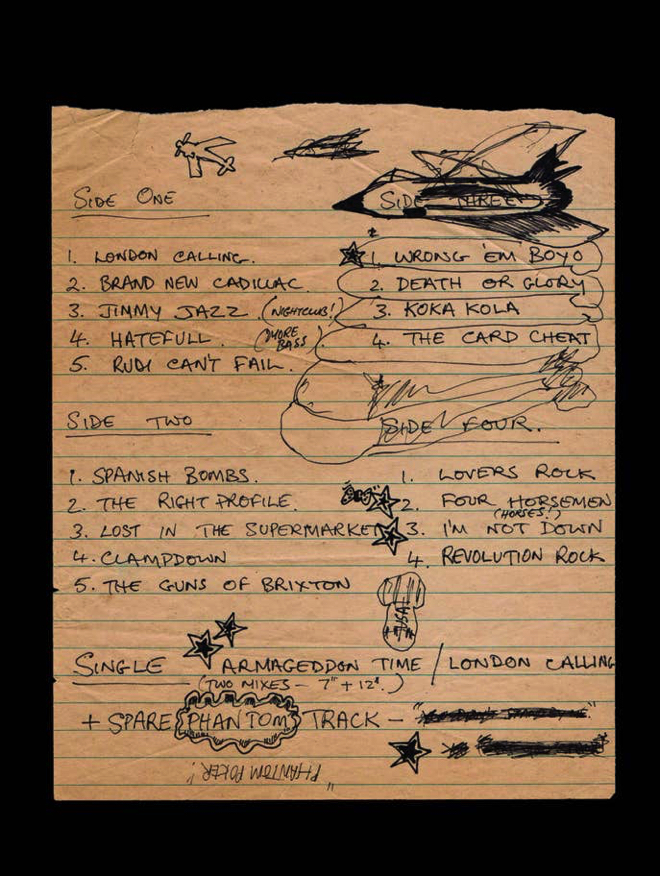 SIDE ONE
1. LONDON CALLING.
2. BRAND NEW CADILLAC.
3. JIMMY JAZZ (NIGHTCLUB!)
4. HATEFULL. (MORE BASS)
5. RUDI CAN'T FAIL.
SIDE TWO
1. SPANISH BOMBS.
2. THE RIGHT PROFILE.
3. LOST IN THE SUPERMARKET
4. CLAMPDOWN
5. THE GUNS OF BRIXTON
SIDE THREE
1. WRONG 'EM' BOYO
2. DEATH OR GLORY
3. KOKA KOLA
4. THE CARD CHEAT
SIDE FOUR.
1. LOVERS ROCK
2. FOUR HORSEMEN
(HORSES!)
3. I'M NOT DOWN
4. REVOLUTION ROCK
USA
SINGLE ARMAGEDDON TIME / LONDON CALLING
(TWO MIXES - 7" + 12".)
+ SPARE PHANTOM TRACK -
"PHANTOM POKER"